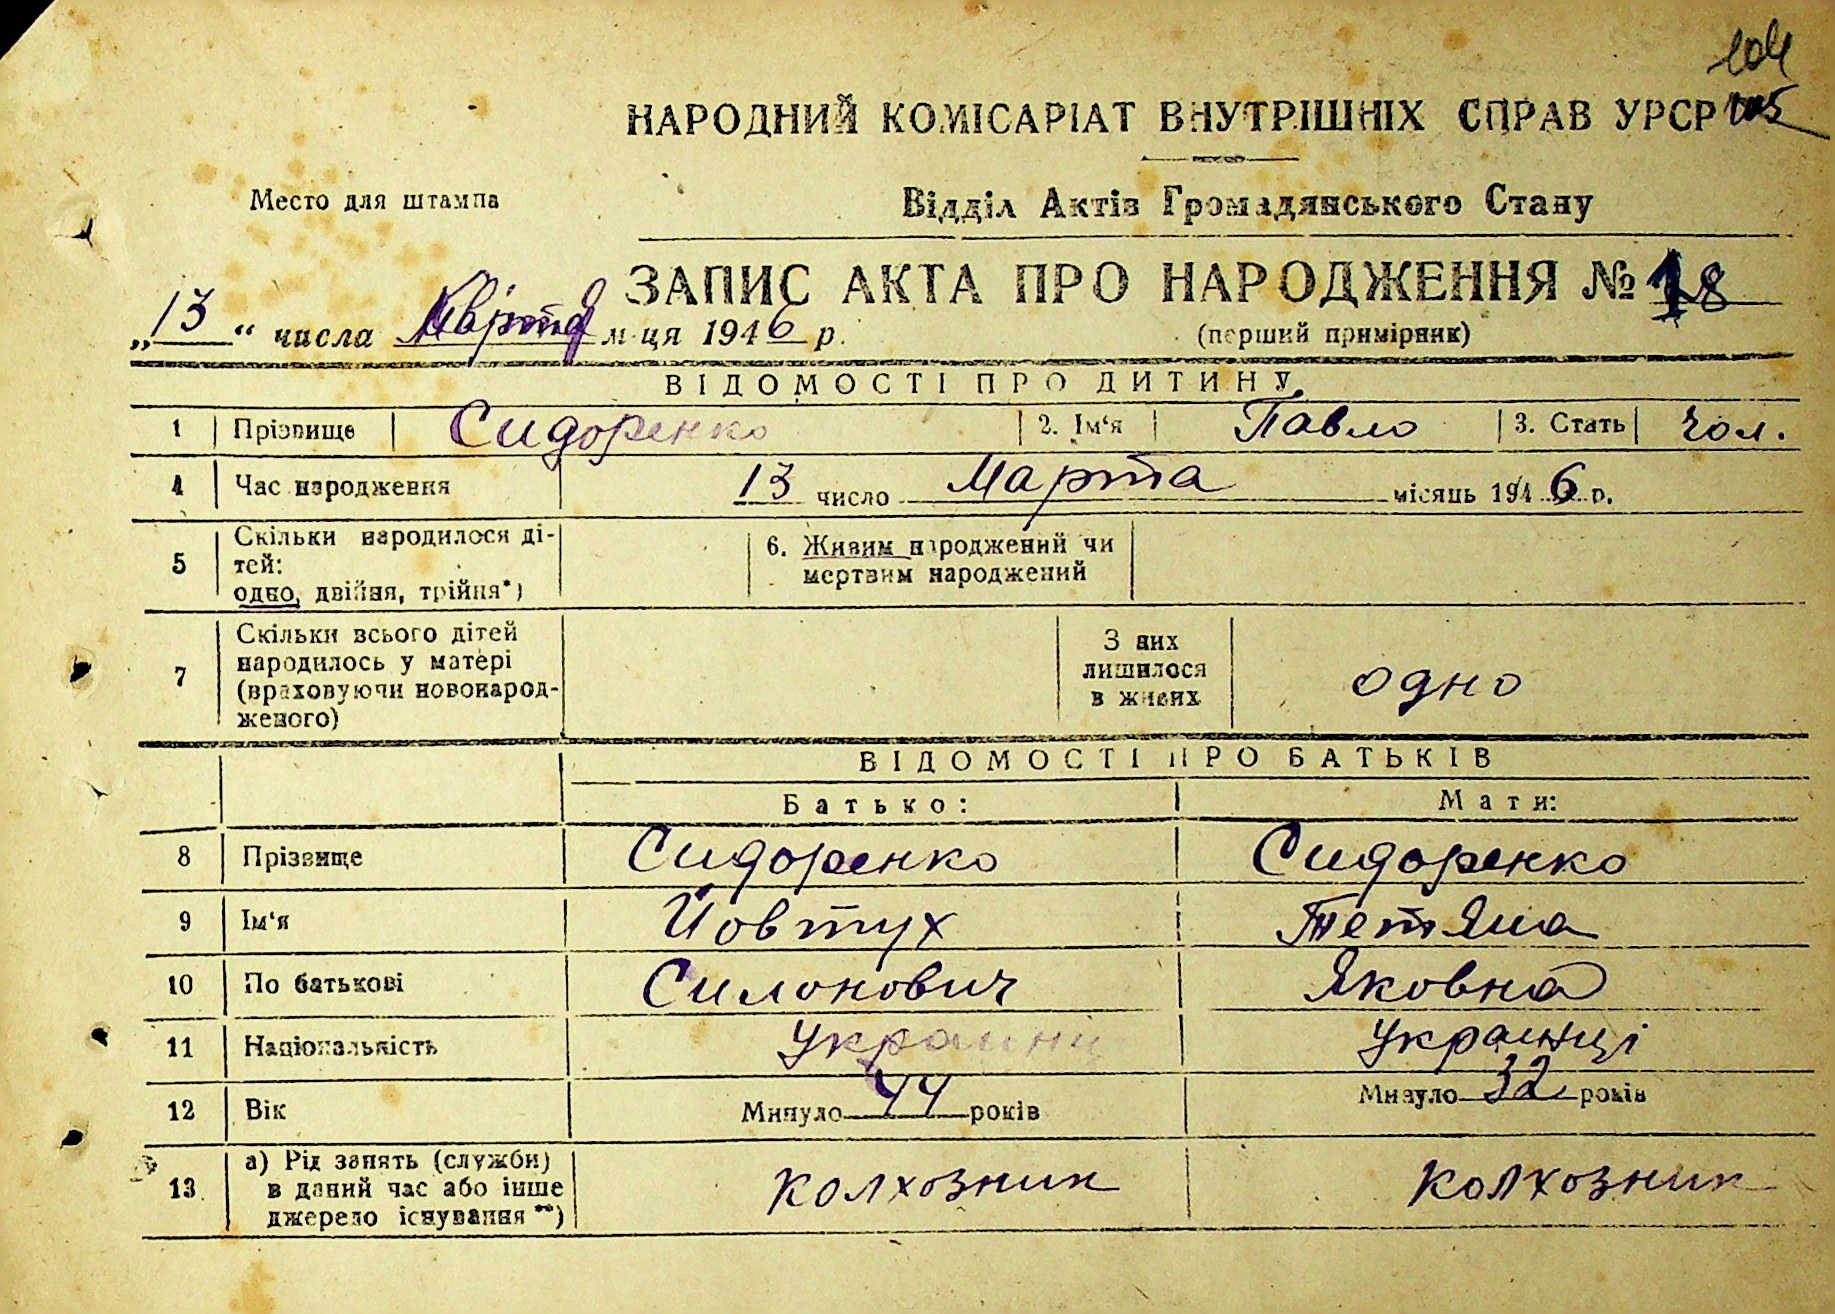 104
105
НАРОДНИЙ КОМІСАРІАТ ВНУТРІШНІХ СПРАВ УРСР
Место для штампа
Відділ Актів Громадянського Стану
ЗАПИС АКТА ПРО НАРОДЖЕННЯ № 18
„13“ числа м-ця 1946 р.
(перший примірник)
ВІДОМОСТІ ПРО ДИТИНУ
1 Прізвище Сидоренко 2. Ім‘я Павло 3. Стать чол.
4 Час народження 13 число Марта місяць 1946 р.
5 Скільки народилося ді-
тей:
одно, двійня, трійня*)
6. Живим народжений чи
мертвим народжений
7 Скільки всього дітей
народилось у матері
(враховуючи новонарод-
женого)
З них
лишилося
в живих
одно
ВІДОМОСТІ ПРО БАТЬКІВ
Батько: Мати:
8 Прізвище Сидоренко Сидоренко
9 Ім‘я Йовтух Тетяна
10 По батькові Силонович Яковна
11 Національність Украинці Украинці
12 Вік Минуло 44 років Минуло 32 років
13 а) Рід занять (служби)
в даний час або інше
джерело існування**)
колхозник колхозник